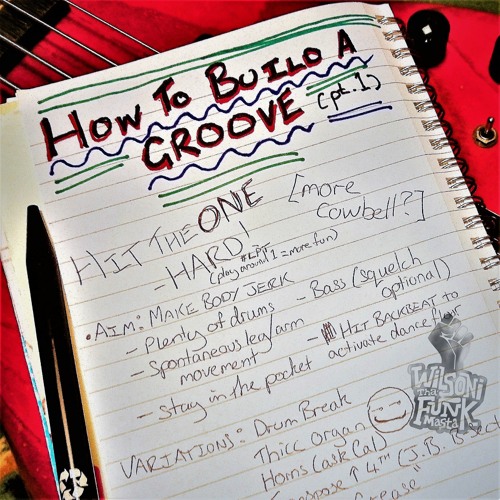 HOW TO BUILD A
GROOVE (pt. 1)
HIT THE ONE
- HARD!
[more
cowbell?]
(play around 1 = more fun)
• AIM: MAKE BODY JERK
- Plenty of drums
- Spontaneous leg/arm
movement
- stay in the pocket
- Bass (squelch
optional)
- HIT BACKBEAT to
activate dancefloor
VARIATIONS: Drum Break
Thicc organ
Horns (ask Cal)
↑ 4TH (J.B. B
WILSONi
Tha
FUNK
Masta